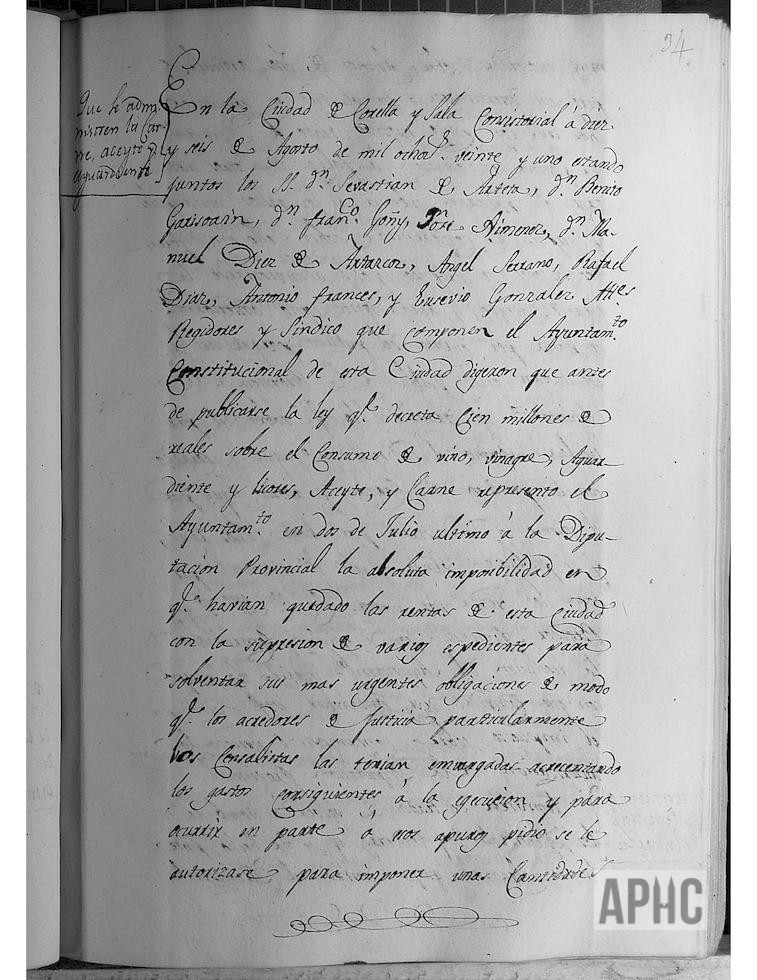 34
Que se admi
nistren la Car-
ne, aceyte y
aguardiente
En la Ciudad de Corella y Sala Consistorial á diez
y seis de Agosto de mil ochos. veinte y uno estando
juntos los SS. dn. Sevastian de Arteta, dn. Benito
Garisoain, dn. Franco. Goñy, Jose Ximenez, dn. Ma-
nuel Diez de Ártarcoz, Angel Serrano, Rafael
Diaz, Antonio frances, y Eusevio Gonzalez Alles
Regidores y Sindico que componen el Ayuntamto.
Constitucional de esta Ciudad digeron que antes
de publicarse la ley qe. decreta Cien millones de
reales sobre el Consumo de vino, vinagre, Aguar-
diente y licores, Aceyte, y Carne represento el
Ayuntamto. en dos de Julio ultimo á la Dipu-
tacion Provincial la absoluta imposibilidad en
qe. havian quedado las rentas de esta Ciudad
con la supresion de varios espedientes para
solventar sus mas urgentes obligaciones de modo
qe. los acredores de Justicia particularmente
los Censalistas las tenian embargadas acrecentando
los gastos consiguientes á la egecucion y para
ocurrir en parte á esos apuros pidio se le
autorizase para imponer unas Cantidades
APHC